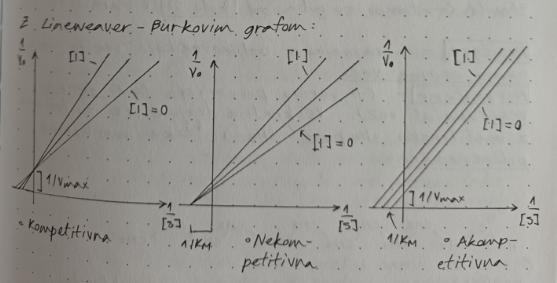 Z Lineweaver-Burkovim grafom:
1
V₀
[I]
[I]=0
1/Vmax
1
[S]
• Kompetitivna
1
V₀
[I]
[I]=0
1
[S]
1/KM
• Nekom-
petitivna
1
V₀
[I]
[I]=0
1/Vmax
1
[S]
1/KM
• Akomp-
etitivna